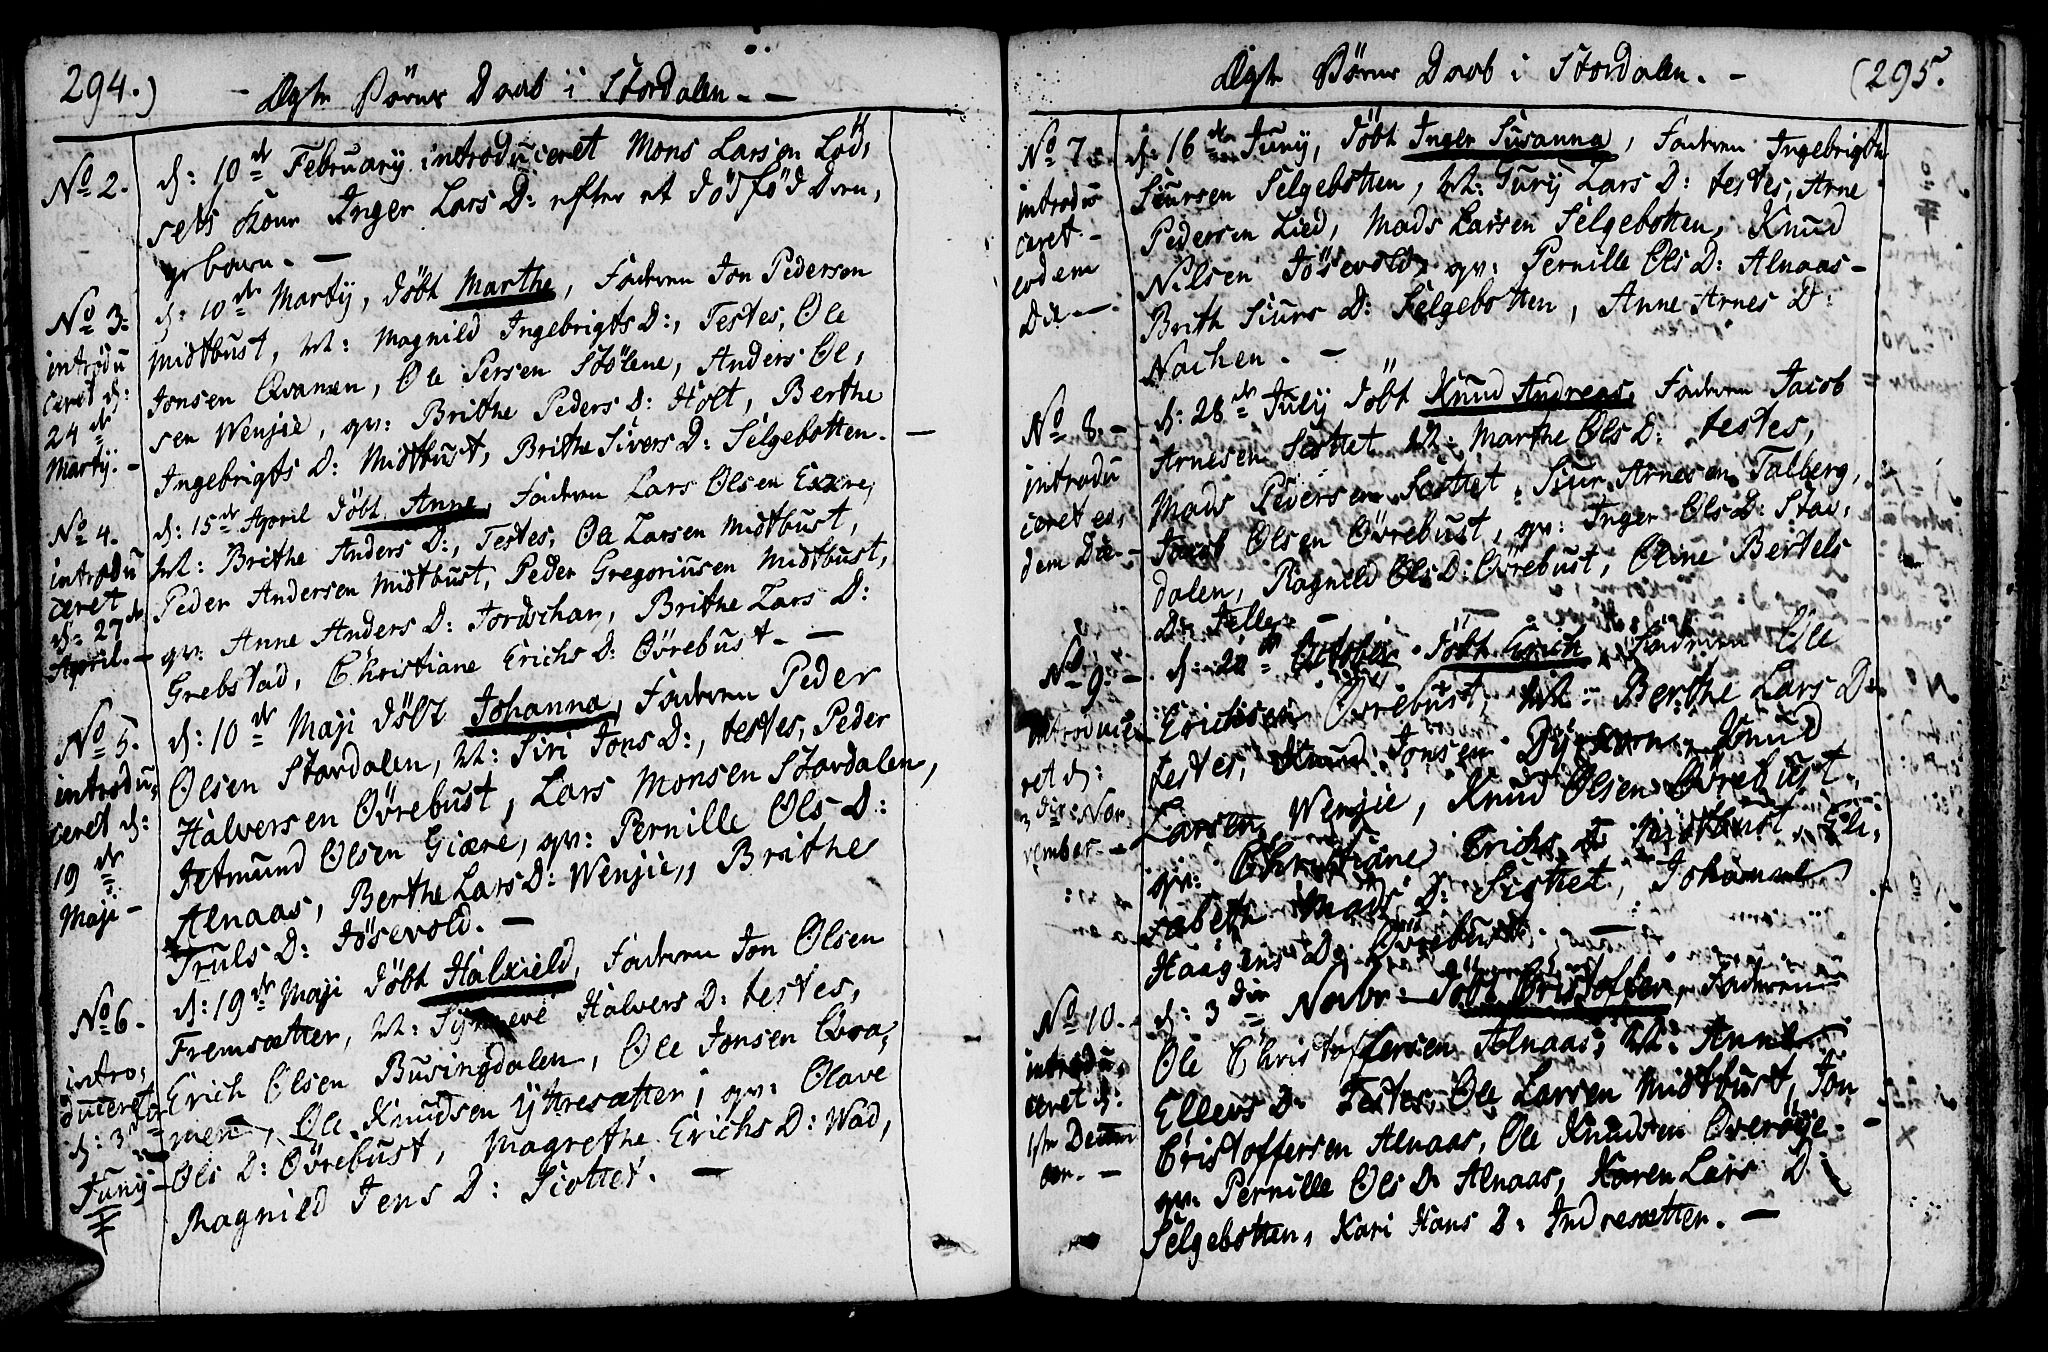 294.)
- Ægte Börns Daab i Stordalen. -
No 2.
d: 10de February introduceret Mons Larsen Löd,
sets Kone Inger Lars D: efter et dödfød Dren,
gebarn. -
No 3.
introdu
ceret d:
24de
Martÿ. -
d: 10de Martÿ, döbt Marthe, Faderen Jon Pedersen
Midtbust, M: Magnild Ingebrigts D:, Testes, Ole
Jonsen Qvamen, Ole Persen Stölene, Anders Ol,
sen Wenjie, qv: Brithe Peders D: Holt, Berthe
Ingebrigts D: Midtbust, Brithe Sivers D: Selgebotten. -
No 4.
introdu
ceret
d: 27de
April. -
d: 15de April döbt Anne, Faderen Lars Olsen
M: Brithe Anders D:, Testes, Ole Larsen Midtbust,
Peder Andersen Midtbust, Peder Gregoriusen Midtbust,
qv: Anne Anders D: Jordschar, Brithe Lars D:
Grebstad, Christiane Erichs D: Övrebust. -
No 5.
introdu,
ceret d:
19de
Maji -
d: 10de Maji döbt Johanna, Faderen Peder
Olsen Stordalen, M: Siri Jons D:, testes, Peder
Halversen Övrebust, Lars Monsen Stordalen,
Jetmund Olsen Giære, qv: Pernille Ols D:
Alnaas, Berthe Lars D: Wenjie, Brithe
Truls D: Jösevold. -
No 6.
intro,
duceret
d: 3die
Junÿ -
d: 19de Maji döbt Halvield, Faderen Jon Olsen
Fremsætter, M: Halvers D: testes,
Erich Olsen Busingdalen, Ole Jonsen Qva,
men, Ole Knudsen Ÿttresætter, qv: Olave
Ols D: Övrebust, Magrethe Erichs D: Wad,
Magnild Jens D: Scottet. -
Ægte Börns Daab i Stordalen. - (295.
No 7.
introdu
ceret
eodem
Die -
d: 16de Junÿ, döbt Inger Susanna, Faderen Ingebrigth
Siursen Selgebotten, M: Gurÿ Lars D: testes, Arne
Pedersen Lied, Mads Larsen Selgebotten, Knud
Nilsen Jösevold, qv: Pernille Ols D: Alnaas -
Brith Siurs D: Selgebotten, Anne Arnes D:
Nachen. -
No 8. -
introdu
ceret eo,
dem Die -
d: 28de Julÿ döbt Knud Andreas, Faderen Jacob
Arnesen Scottet M: Marthe Ols D: testes,
Mads Pedersen Scottet, Siur Arnesen Talberg,
Jacob Olsen Övrebust, qv: Inger Ols D: Stav,
dalen, Ragnild Ols D: Övrebust, Oline Bertels
D:
No 9. -
introduce
ret d:
3die Nov
vember. -
d: October döbt Erich, Faderen Ole
Erichsen Övrebust, M: Berthe Lars D:
testes, Knud Jonsen Knud
Larsen Wenjie, Knud Olsen Övrebust,
qv: Christiane Erichs D: Midtbust, Eli,
sabeth Mads D: Scottet, Johanne
Haagens D: Övrebust. -
No 10.
introdu,
ceret d:
1ste Decem
ber. -
d: 3die Novbr. döbt Cristoffer, Faderen
Ole Christoffersen Alnaas, M: Anne
Ellevs D: Testes Ole Larsen Midtbust, Jon
Cristoffersen Alnaas, Ole Knudsen Överöye. -
qv: Pernille Ols D: Alnaas, Karen Lars D:
Selgebotten, Kari Hans D: Indresætter. -